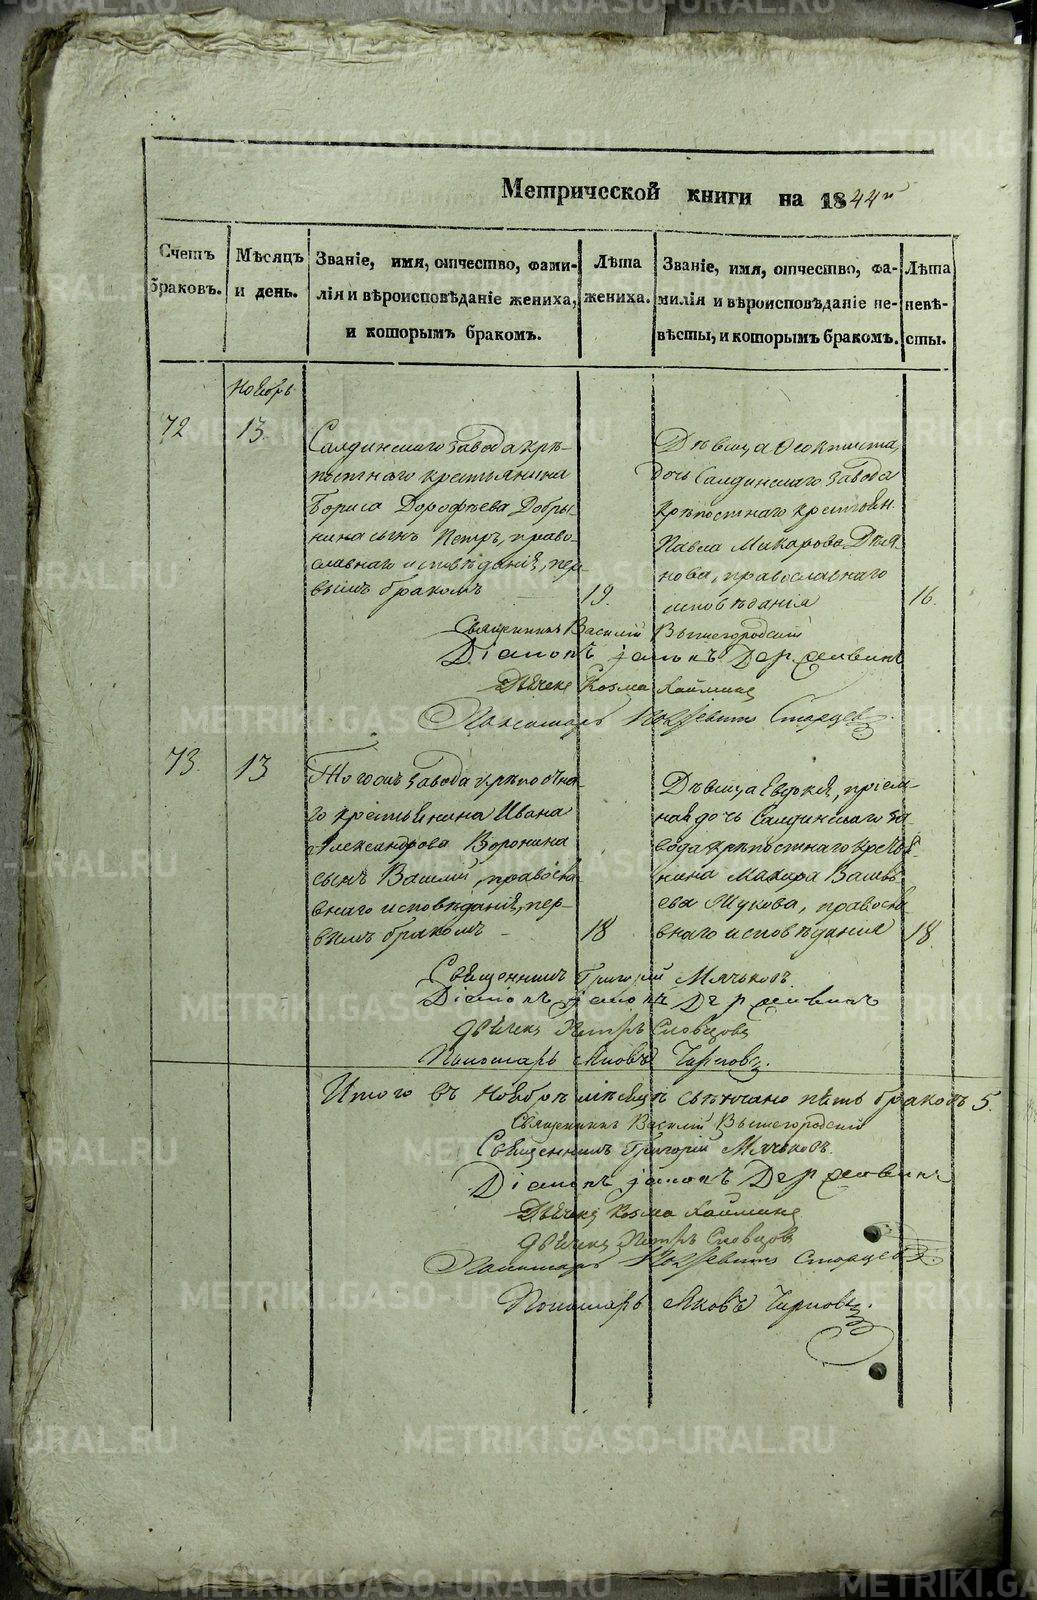 METRIKI.GASO-URAL.RU
Метрической книги на 1844й
Счетъ браковъ.
Мѣсяцъ и день.
Званіе, имя, отчество, фами-
лія и вѣроисповѣданіе жениха,
и которымъ бракомъ.
Лѣта
жениха.
Званіе, имя, отчество, фа-
милія и вѣроисповѣданіе не-
вѣсты, и которымъ бракомъ.
Лѣта
невѣ-
сты.
Ноябрь
72
13.
Салдинскаго завода крѣ-
постнаго крестьянина
Бориса Дорофѣева Добры-
нина сынъ Петръ, право-
славнаго исповѣданія, пер-
вымъ бракомъ
19.
Дѣвица Феоктиста,
дочь Салдинскаго завода
крѣпостнаго крестьян.
Павла Макарова
нова, православнаго
исповѣданія
16.
Священникъ Василій Вышегородскій
Діаконъ Іаковъ Державинъ
Дьячекъ Козма
Пономарь Стар
73.
13
Тогожъ завода крѣпостна-
го крестьянина Ивана
Александрова Воронина
сынъ Василій, правосла-
внаго исповѣданія, пер-
вымъ бракомъ
18
Дѣвица Евдокія, пріем-
ная дочь Салдинскаго за-
вода крѣпостнаго крестья-
нина Макара Василь-
ева Жукова, правосла-
внаго исповѣданія
18.
Священникъ Григорій Мячковъ.
Діаконъ Іаковъ Державинъ
Дьячекъ Петръ Словцовъ
Пономарь Яковъ
Итого въ Ноябрѣ мѣсяцѣ свѣнчано пять браковъ 5.
Священникъ Василій Вышегородскій
Священникъ Григорій Мячковъ.
Діаконъ Іаковъ Державинъ
Дьячекъ Козма
Дьячекъ Петръ Словцовъ
Пономарь
Пономарь Яковъ